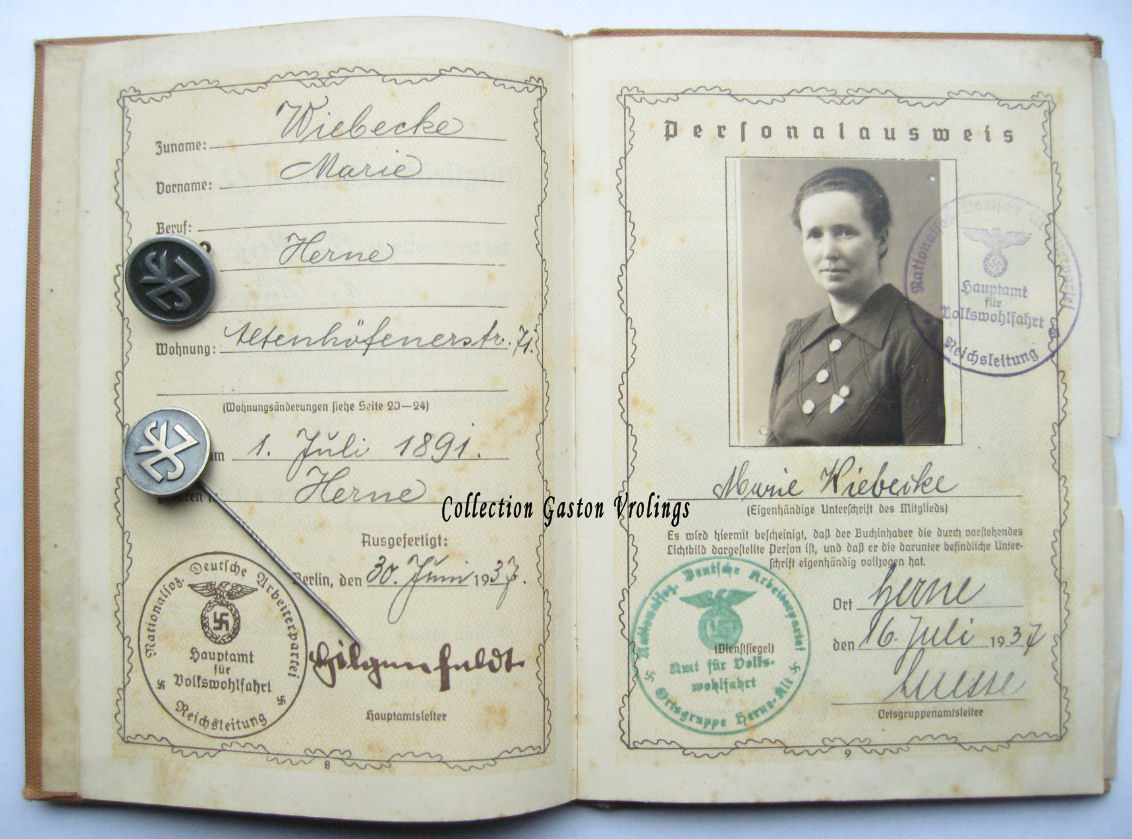 Zuname: Wiebecke
Vorname: Marie
Beruf:
Herne
Wohnung: Altenhöfenerstr. 71.
(Wohnungsänderungen siehe Seite 23—24)
am 1. Juli 1891.
Herne
Ausgefertigt:
Berlin, den 30. Juni 1937.
Hilgenfeldt
Hauptamtsleiter
Nationalsoz. Deutsche Arbeiterpartei
Hauptamt
für
Volkswohlfahrt
Reichsleitung
8
Collection Gaston Vrolings
Personalausweis
Nationalsoz. Deutsche Arbeiterpartei
Hauptamt
für
Volkswohlfahrt
Reichsleitung
Marie Wiebecke
(Eigenhändige Unterschrift des Mitglieds)
Es wird hiermit bescheinigt, daß der Buchinhaber die durch vorstehendes
Lichtbild dargestellte Person ist, und daß er die darunter befindliche Unter-
schrift eigenhändig vollzogen hat.
Ort Herne
den 16. Juli 1937
Ortsgruppenamtsleiter
Nationalsoz. Deutsche Arbeiterpartei
(Dienstsiegel)
Amt für Volks-
wohlfahrt
Ortsgruppe Herne-Alt
9